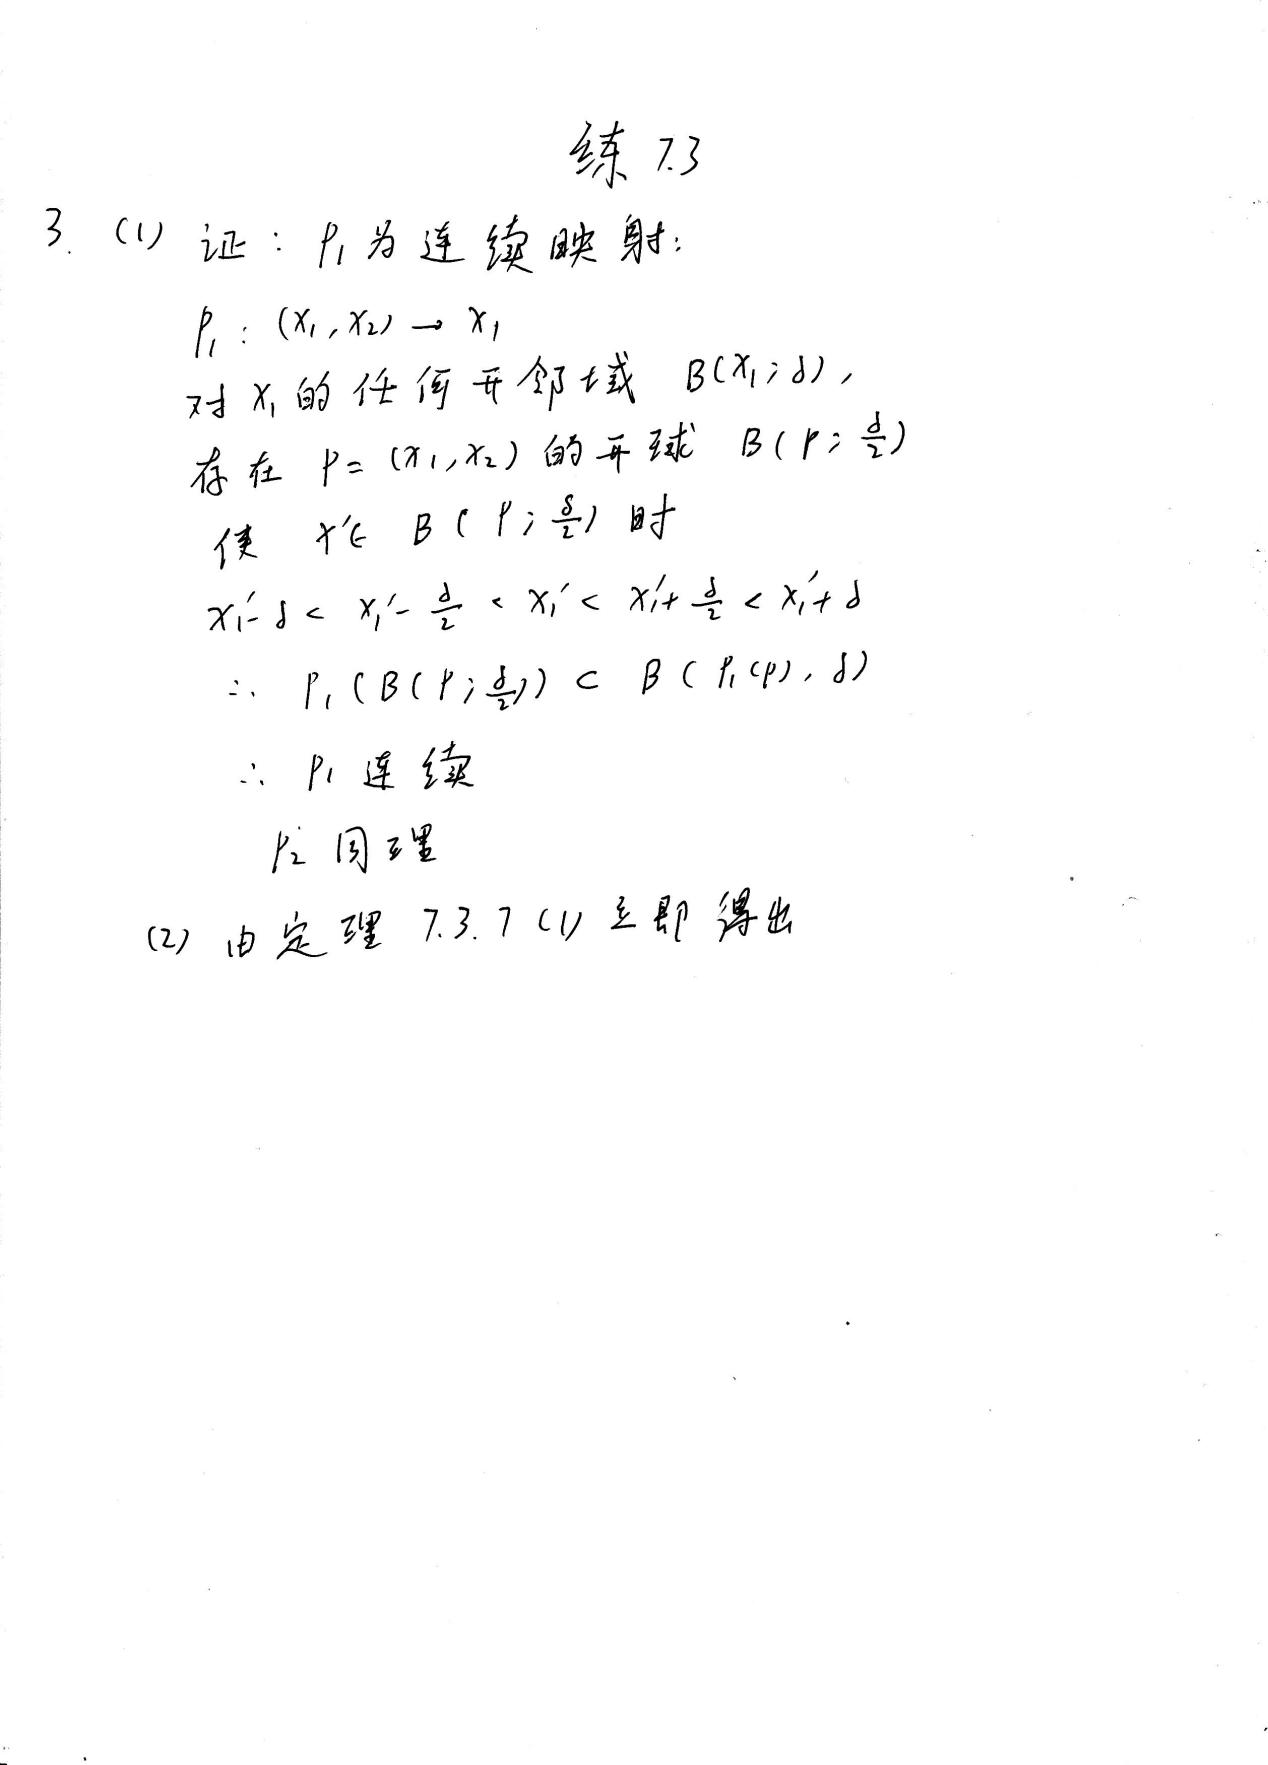 练 7.3
3. (1) 证: P₁为连续映射:
P₁: (x₁, x₂) → x₁
对 x₁ 的任何开邻域 B(x₁; δ),
存在 P = (x₁, x₂) 的开球 B(P; δ/2)
使 x′∈ B(P; δ/2) 时
x₁′-δ < x₁′- δ/2 < x₁′ < x₁′+ δ/2 < x₁′+ δ
∴ P₁(B(P; δ/2)) ⊂ B(P₁(P), δ)
∴ P₁ 连续
P₂ 同理
(2) 由定理 7.3.7 (1) 立即得出